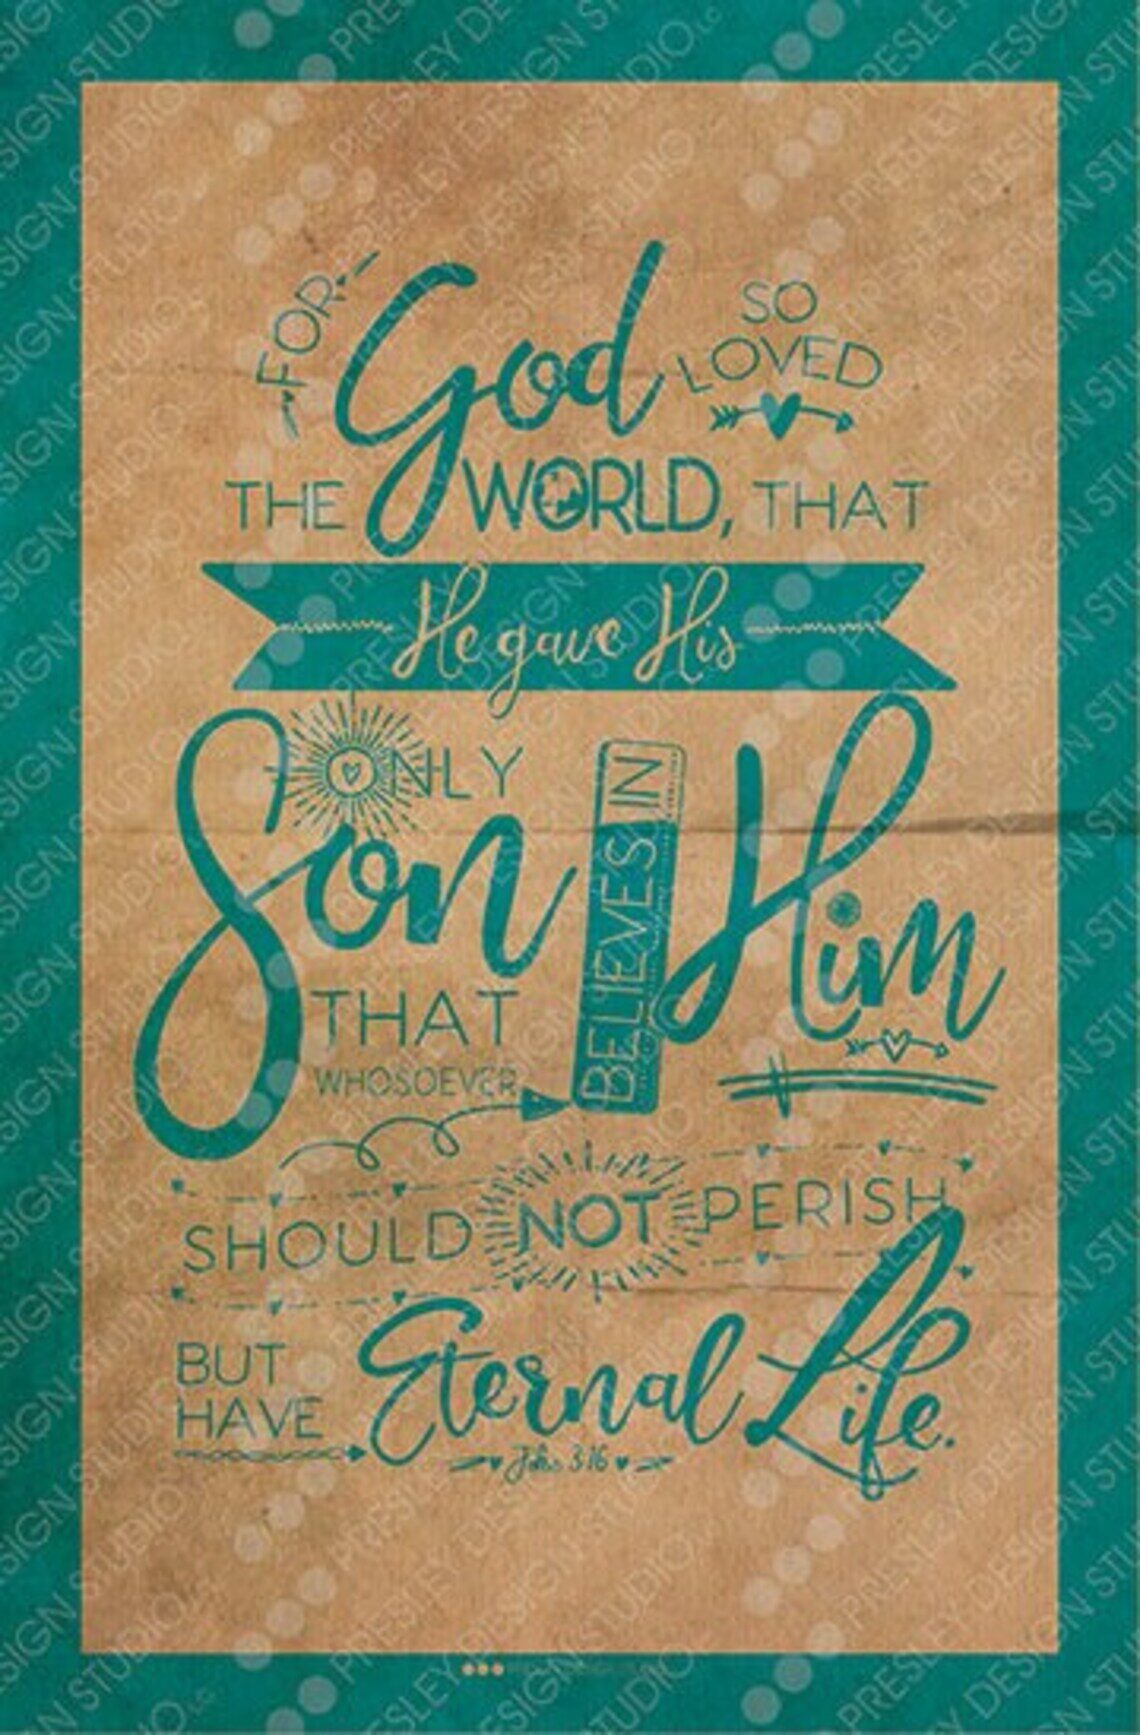 FOR God SO LOVED
THE WORLD, THAT
He gave His
ONLY
Son
THAT
WHOSOEVER
BELIEVES IN
Him
SHOULD NOT PERISH
BUT HAVE Eternal Life.
John 3:16
PRESLEY DESIGN STUDIO LLC